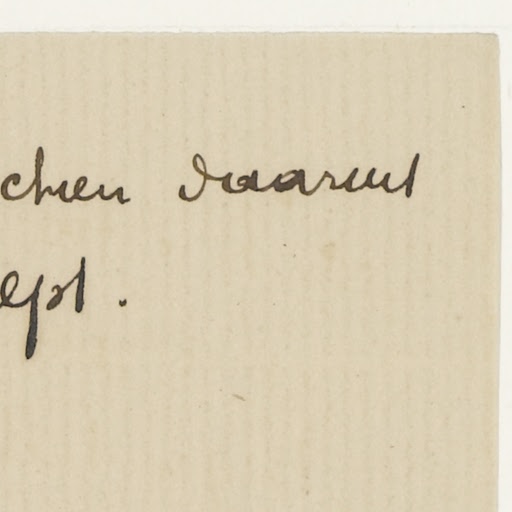 chien daaruit
ept.